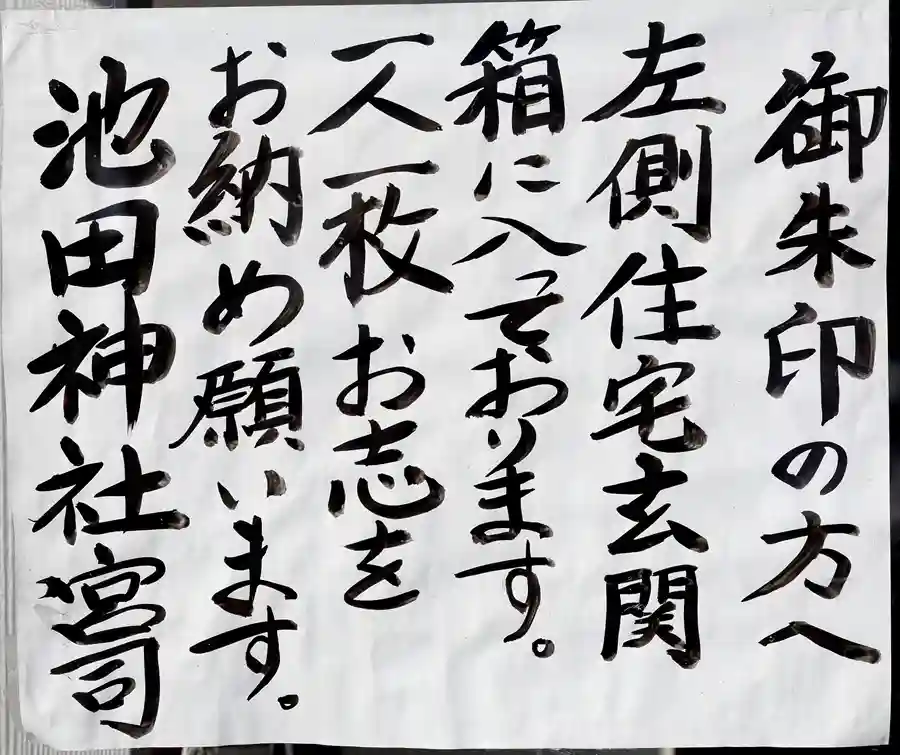 御朱印の方へ
左側住宅玄関
箱に入っております。
一人一枚お志を
お納め願います。
池田神社宮司